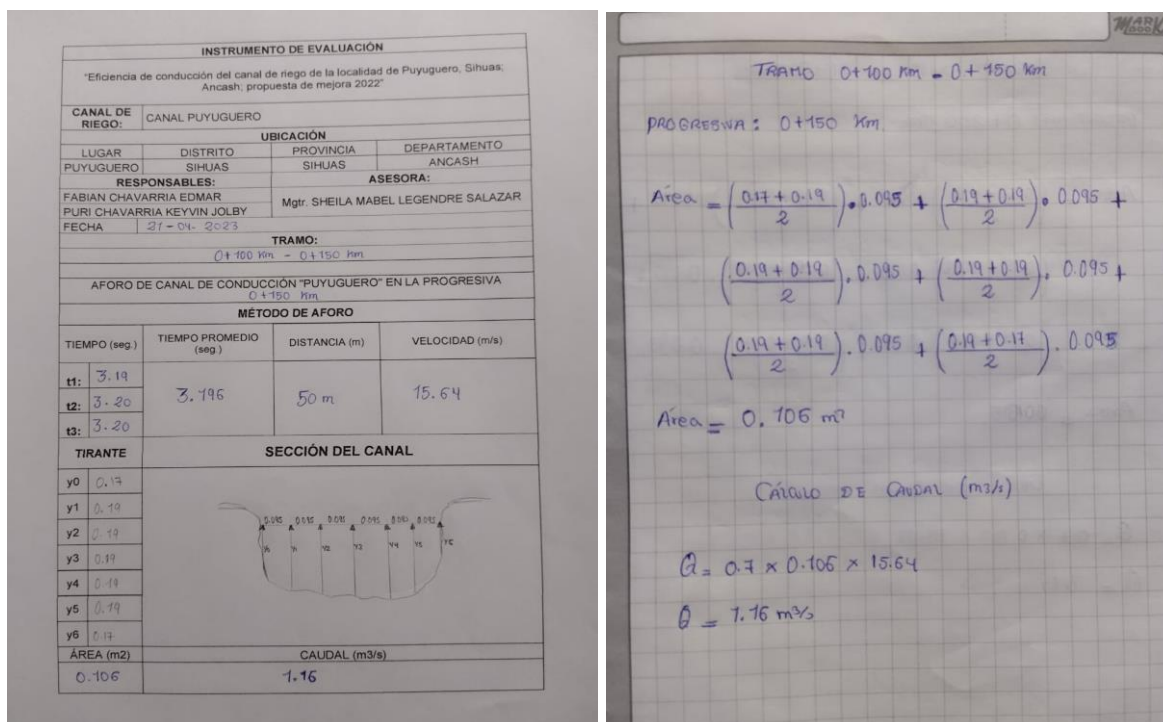 INSTRUMENTO DE EVALUACIÓN
"Eficiencia de conducción del canal de riego de la localidad de Puyuguero, Sihuas;
Ancash; propuesta de mejora 2022"
CANAL DE RIEGO: CANAL PUYUGUERO
UBICACIÓN
LUGAR DISTRITO PROVINCIA DEPARTAMENTO
PUYUGUERO SIHUAS SIHUAS ANCASH
RESPONSABLES: ASESORA:
FABIAN CHAVARRIA EDMAR
PURI CHAVARRIA KEYVIN JOLBY
Mgtr. SHEILA MABEL LEGENDRE SALAZAR
FECHA 21-04-2023
TRAMO:
0+100 Km - 0+150 km
AFORO DE CANAL DE CONDUCCIÓN "PUYUGUERO" EN LA PROGRESIVA
0+150 Km
MÉTODO DE AFORO
TIEMPO (seg.) TIEMPO PROMEDIO (seg.) DISTANCIA (m) VELOCIDAD (m/s)
t1: 3.19
t2: 3.20
t3: 3.20
3.196 50 m 15.64
TIRANTE SECCIÓN DEL CANAL
y0 0.17
y1 0.19
y2 0.19
y3 0.19
y4 0.19
y5 0.19
y6 0.17
0.095 0.095 0.095 0.095 0.095 0.095
Y0 Y1 Y2 Y3 Y4 Y5 Y6
ÁREA (m2) CAUDAL (m3/s)
0.106 1.16
MARK
BOOK
TRAMO 0+100 Km - 0+150 Km
PROGRESIVA: 0+150 Km.
Area = (0.17+0.19/2).0.095 + (0.19+0.19/2).0.095 +
(0.19+0.19/2).0.095 + (0.19+0.19/2).0.095 +
(0.19+0.19/2).0.095 + (0.19+0.17/2).0.095
Area = 0.106 m²
CÁLCULO DE CAUDAL (m3/s)
Q = 0.7 x 0.106 x 15.64
Q = 1.16 m3/s